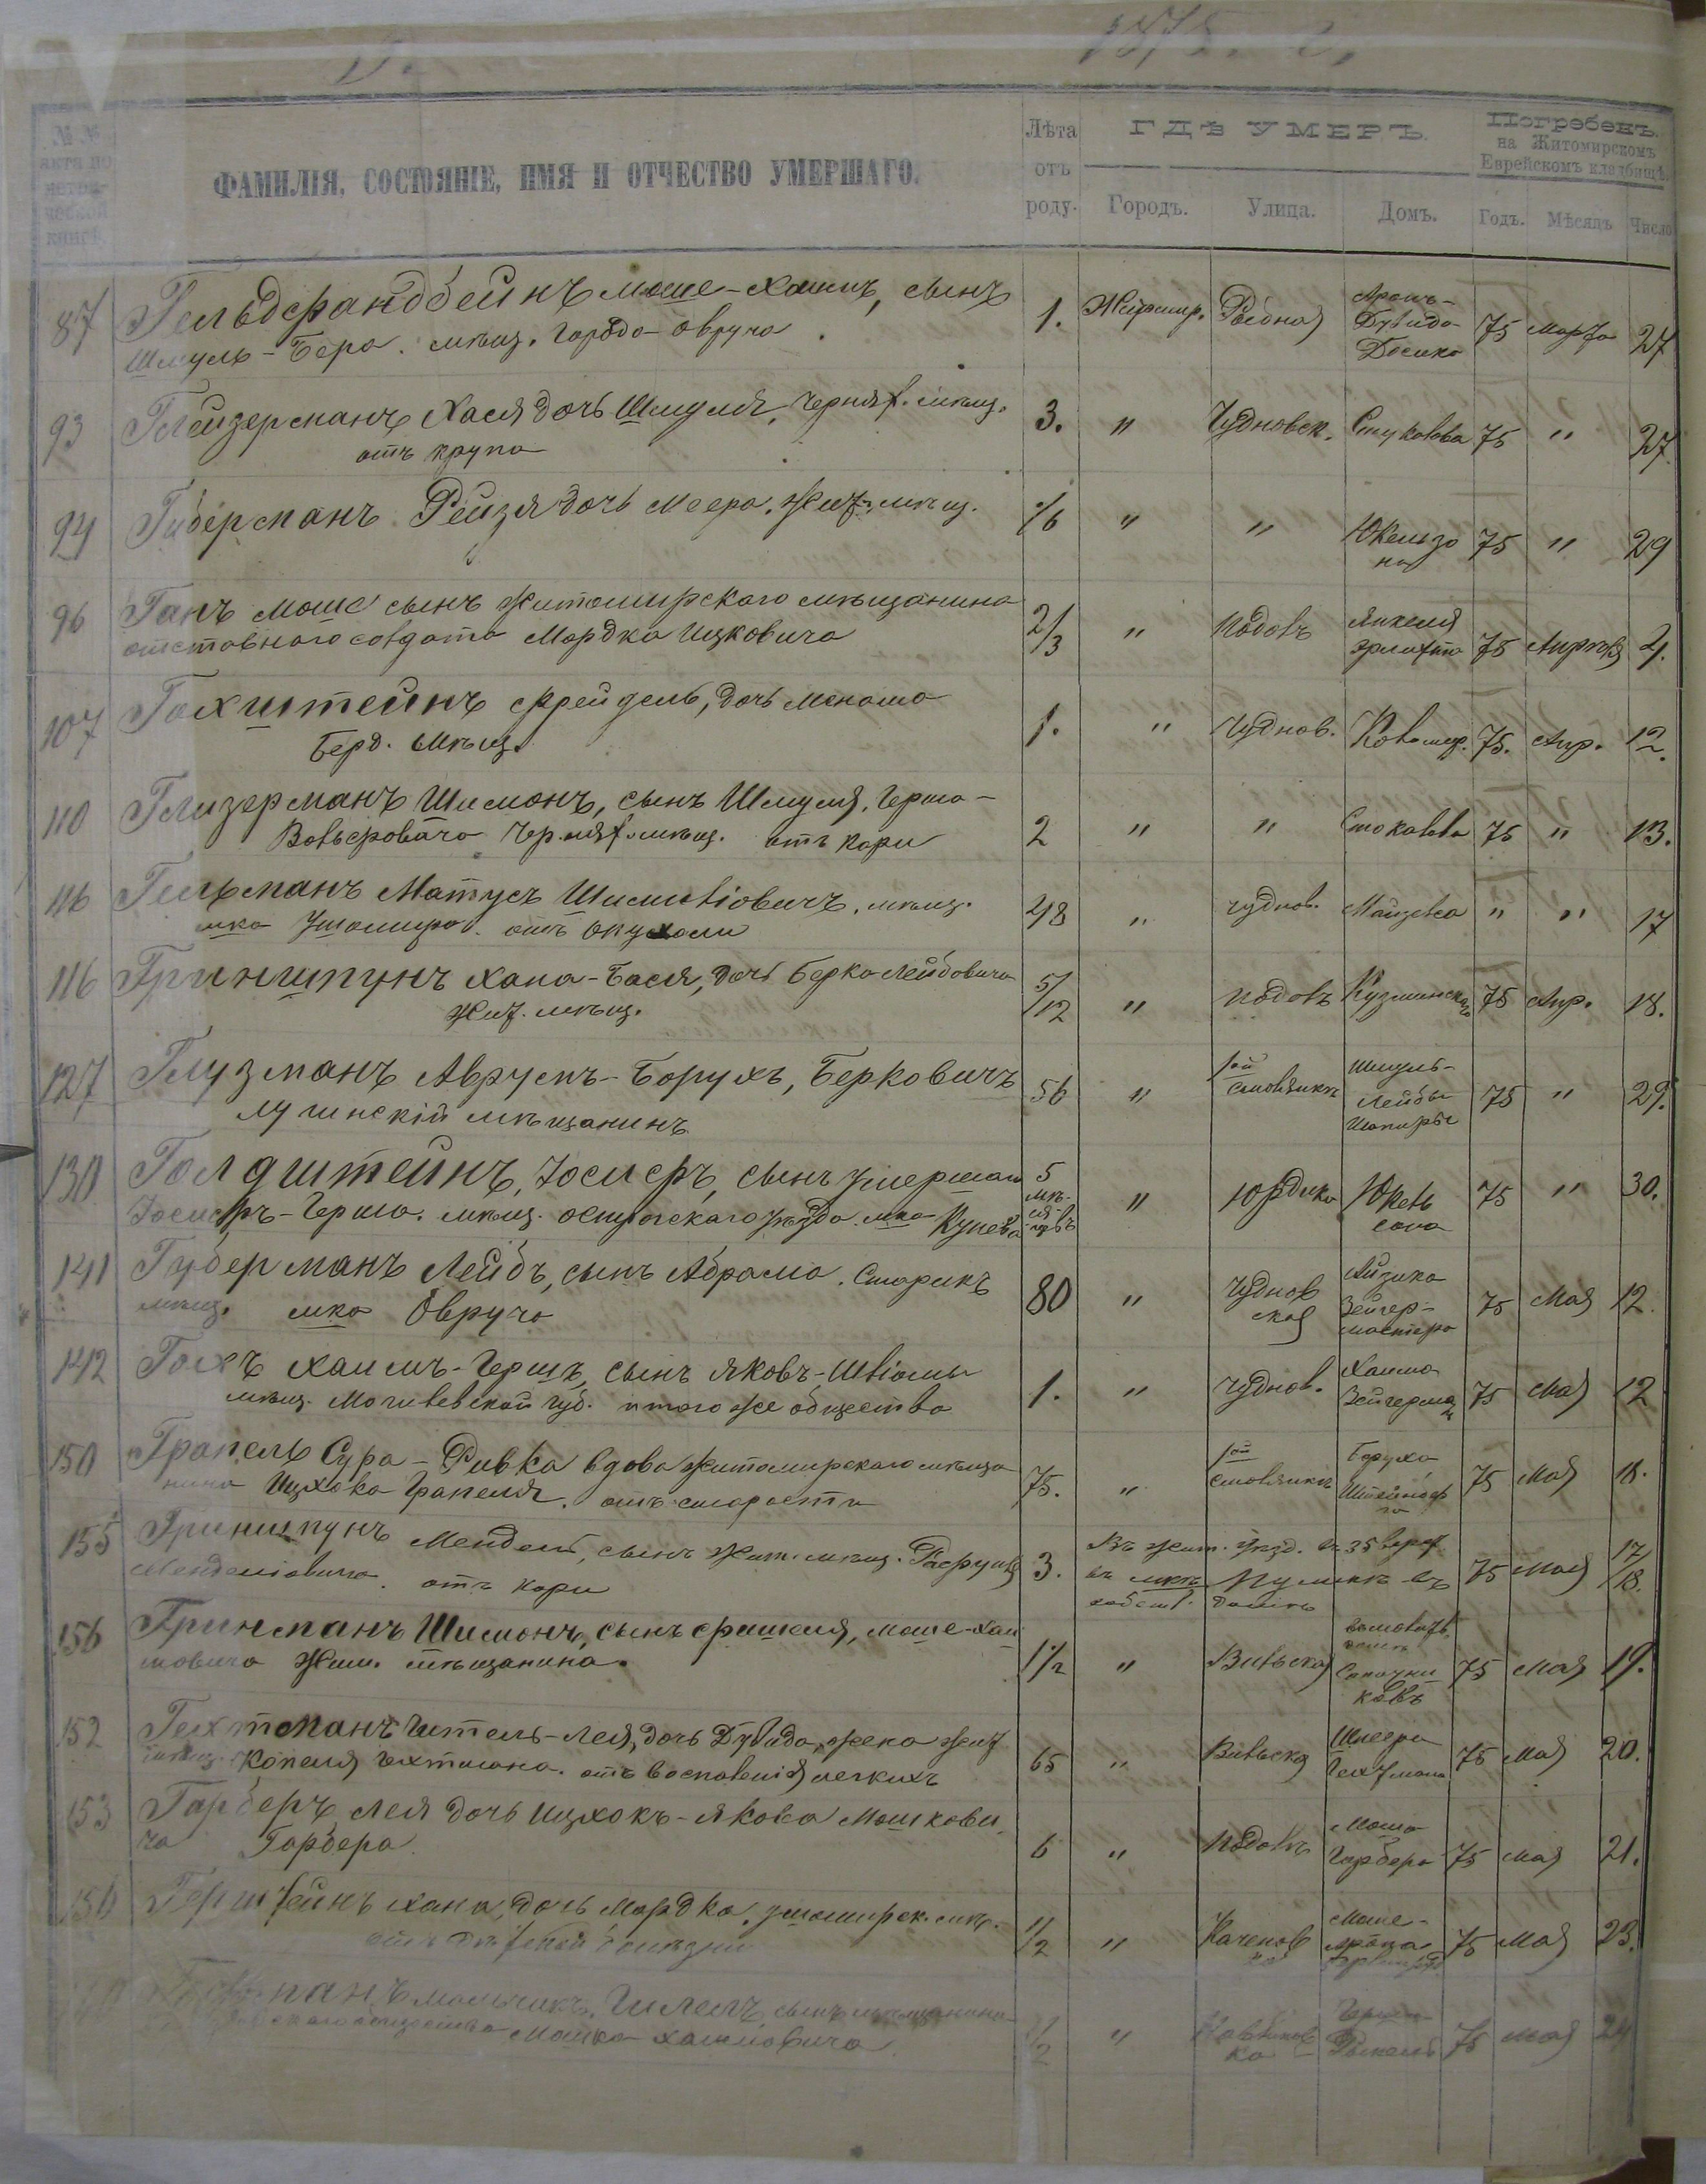 Г. 1875. г.
№ №
акта по
метри-
ческой
книгѣ.
ФАМИЛІЯ, СОСТОЯНІЕ, ИМЯ И ОТЧЕСТВО УМЕРШАГО.
Лѣта
отъ
роду.
ГДѢ УМЕРЪ.
Городъ. Улица. Домъ.
Погребенъ.
на Житомирскомъ
Еврейскомъ кладбищѣ.
Годъ. Мѣсяцъ Число
87 Гельдфандбейнъ Моше-Хаимъ, сынъ
Шмуль-Бера. мѣщ. города Овруча
1. Житомир. Рыбная Аронъ-
Дувида
75 Марта 27
93 Глейзерманъ Хася дочь Шмуля, Чернях. мѣщ.
отъ крупа
3. " Чудновск. Стукалова 75 " 27
94 Гиберманъ Рейзя дочь Меера, Жит. мѣщ.
1/6 " " Юкельзо
на 75 " 29
96 Ганъ Моше сынъ Житомирского мѣщанина
отставного солдата Мордка Ицковича
2/3 " Подолъ Янкеля
75 Апрѣля 2.
107 Гохштейнъ Фрейдель, дочь
Берд. мѣщ.
1. " Чуднов. 75. Апр. 12.
110 Глизерманъ Шимонъ, сынъ Шмуля, Герша-
Вольфовича Чернях. мѣщ. отъ кори
2 " " 75 " 13.
116 Гельманъ Матусъ мѣщ.
мка Ушомира. отъ опухоли
48 " Чуднов. " " 17
116 Гриншпунъ Хана-Бася, дочь Берка Лейбовича
Жит. мѣщ.
5/12 " Подолъ Кузминскаго 75 Апр. 18.
127 Глузманъ Аврумъ-Борухъ, Берковичъ
Лугинскій мѣщанинъ
56 " 1ой
Смолянкѣ
Шмуль-
Лейбы
Шапиры
75 " 29.
130 Голдштейнъ, Иосифъ, сынъ умершаго
Иосифъ-Герша. мѣщ. Острогскаго уѣзда мка Кунева
5
мѣ-
ся-
цевъ
" Юрдика Юкель
сона 75 " 30.
141 Губерманъ Лейбъ, сынъ Абрама. Старикъ
мѣщ. мка Овруча
80 " Чуднов
ская
Айзика
Зейгер-
мастера
75 Мая 12.
142 Голхъ Хаимъ-Гершъ, сынъ Яковъ-Шліомы
мѣщ. Могилевской губ. и того же общества
1. " Чуднов. Хаима
75 Мая 12
150 Грапель Сура-Ривка вдова Житомирскаго мѣща
нина Ицхока Грапеля. отъ старости
75. " 1ой
Смолянкѣ
Боруха
75 Мая 18.
155 Гриншпунъ Мендель, сынъ Жит. мѣщ. Рафуила
Менделіовича. отъ кори
3. Въ Жит. Уѣзд. въ 35 верст.
въ мкѣ Пулинѣ въ
собств. домѣ
75 Мая 17/18.
156 Гринманъ Шимонъ, сынъ Фишеля, Моше-Хаи
мовича Жит. мѣщанина.
1 1/2 " Вильская
75 Мая 19.
152 Гехтманъ Гитель-Лея, дочь Дувида, жена Жит
мѣщ. Копеля Гехтмана. отъ воспаленія легкихъ
65 " Вильская Шмеера
Гехтмана
75 Мая 20.
153 Гарберъ Лея дочь Ицхокъ-Якова Мошкови
ча Гарбера.
6 " Подолъ Моша
Гарбера 75 Мая 21.
Герштейнъ Хана, дочь Мордка, Ушомирск. мѣщ.
отъ дѣтской болѣзни
1/2 " Каченов
ка Моше-
75 Мая 23.
мальчикъ Гилелъ, сынъ мѣщанина
общества Мошка Хаимовича
1/2 " 75 Мая 24